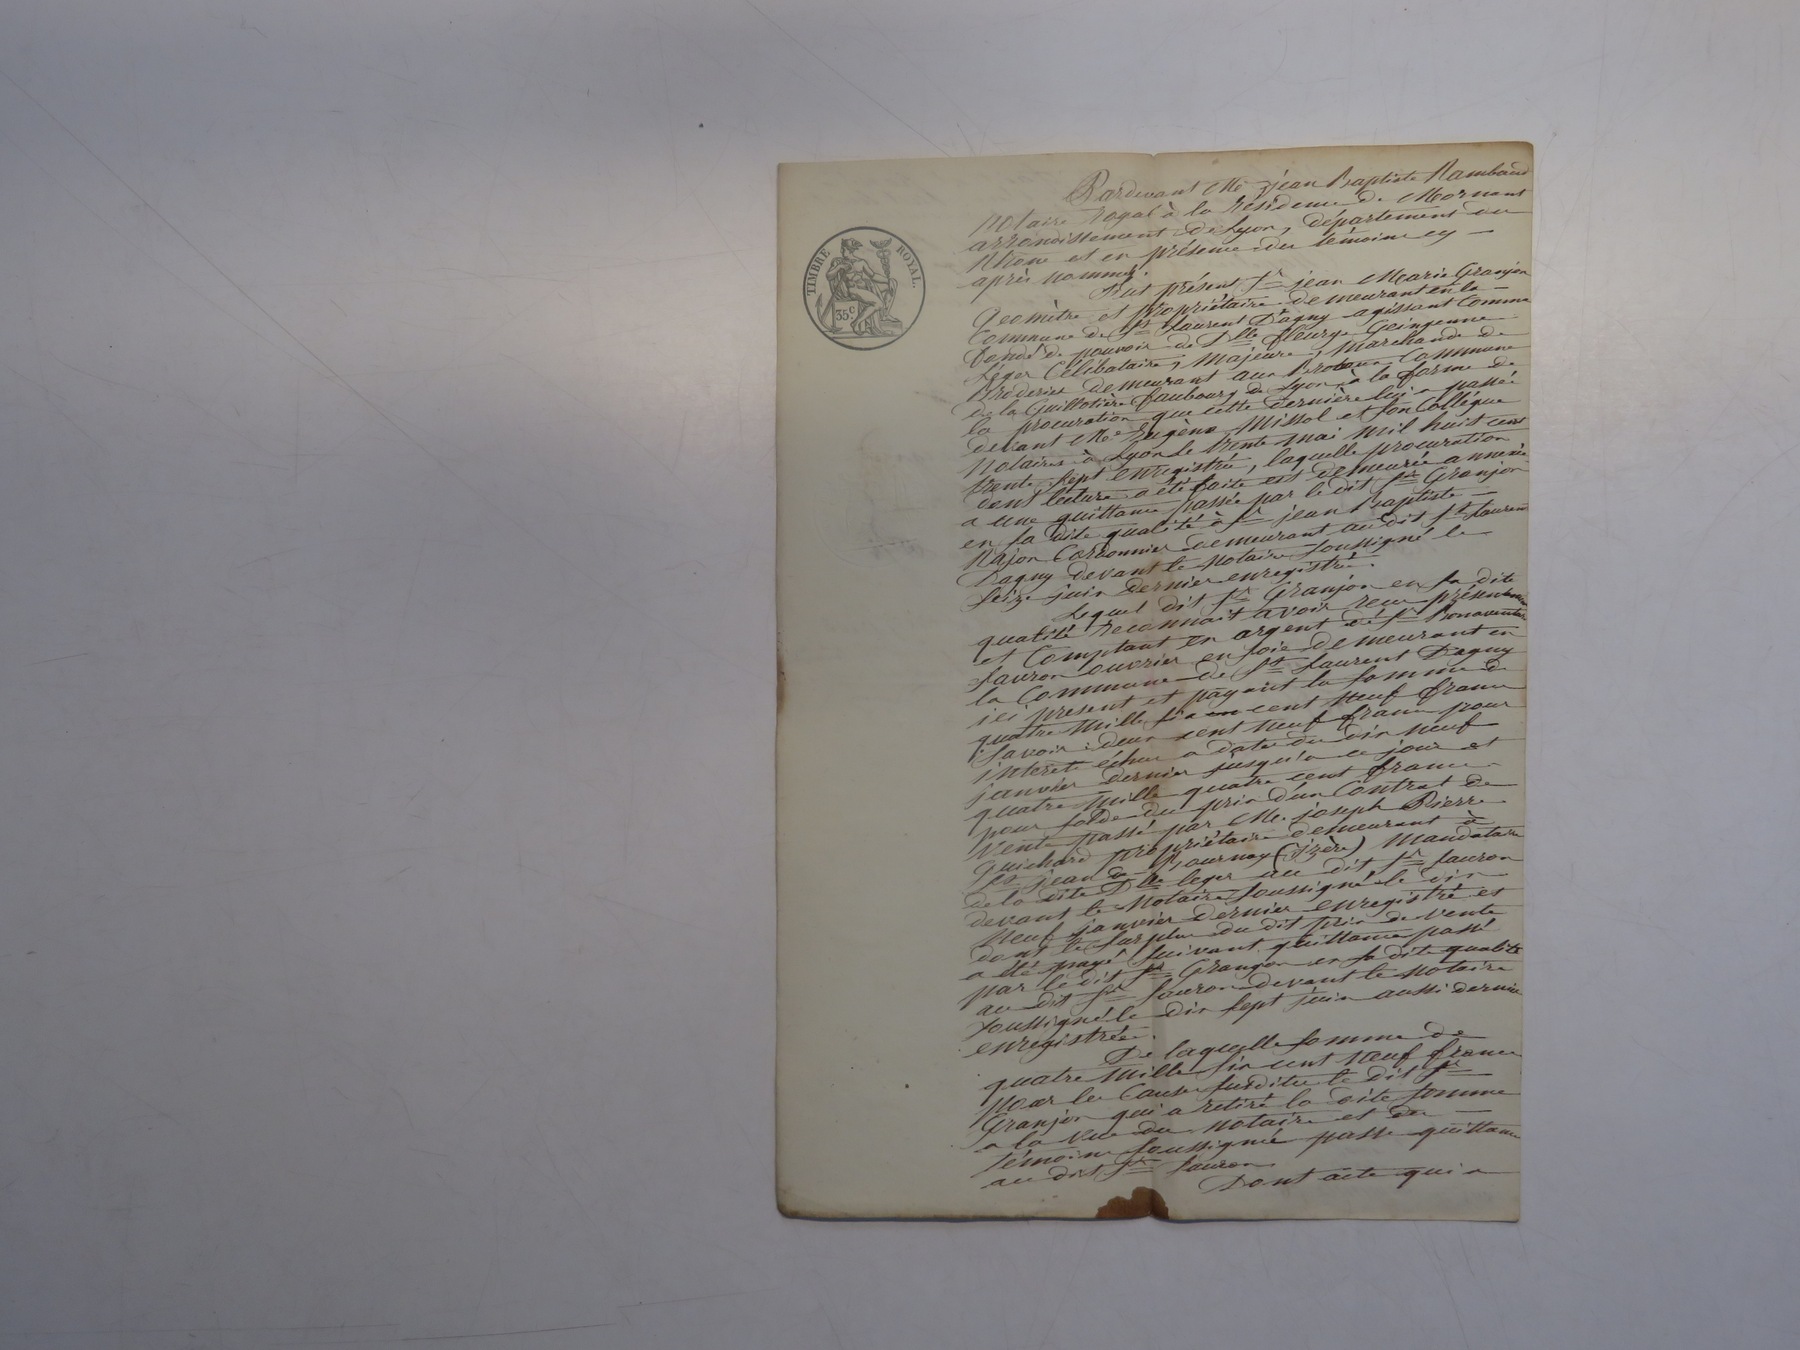 TIMBRE ROYAL.
35 c
Pardevant Me jean Baptiste Rambaud
Notaire royal à la résidence de Mornant
arrondissement de Lyon, département du
Rhone et en présence des témoins cy
après nommés.
Fut présent Sr jean Marie Granjon
Géomètre et propriétaire demeurant en la
Commune de St Laurent Dagny agissant Comme
fondé de pouvoir de Dlle fleurye
Léger Célibataire, Majeure, Marchande de
Broderies demeurant aux Commune
de la Guillotière faubourg de Lyon à la forme de
la procuration que cette dernière lui a passée
devant Me Eugène Missol et son Collégue
Notaires à Lyon le trente mai mil huit cent
trente sept enregistrée, laquelle procuration
dont lecture a été faite est demeurée annexée
a une quittance passée par le dit Sr Granjon
en sa dite qualité à Sr jean Baptiste
Cordonnier demeurant au dit St Laurent
Dagny devant le Notaire soussigné le
seize juin dernier enregistrée.
Lequel dit Sr Granjon en sa dite
qualité reconnait avoir reçu présentement
et Comptant en argent de Sr Bonaventure
ouvrier en soie demeurant en
la Commune de St Laurent Dagny
ici présent et payant la somme de
quatre mille six cent neuf francs
savoir : deux cent neuf francs pour
intérêts échus a dater du dix neuf
janvier dernier jusqu'a ce jour et
quatre mille quatre cent francs
pour solde du prix d'un Contrat de
Vente passé par Me. joseph Pierre
Guichard propriétaire demeurant à
St jean de Bournay (isère) Mandataire
de la dite Dlle leger au dit Sr
devant le Notaire soussigné le dix
Neuf janvier dernier enregistré et
dont le surplus du dit prix de vente
a été payé suivant quittance passé
par le dit Sr Granjon en sa dite qualité
au dit Sr devant le Notaire
soussigné le dix sept juin aussi dernier
enregistrée.
De laquelle somme de
quatre mille six cent neuf francs
pour les Causes susdites le dit Sr
Granjon qui a retiré la dite somme
a la vue du Notaire et des
témoins soussignés passe quittance
au dit Sr
Dont acte qui a